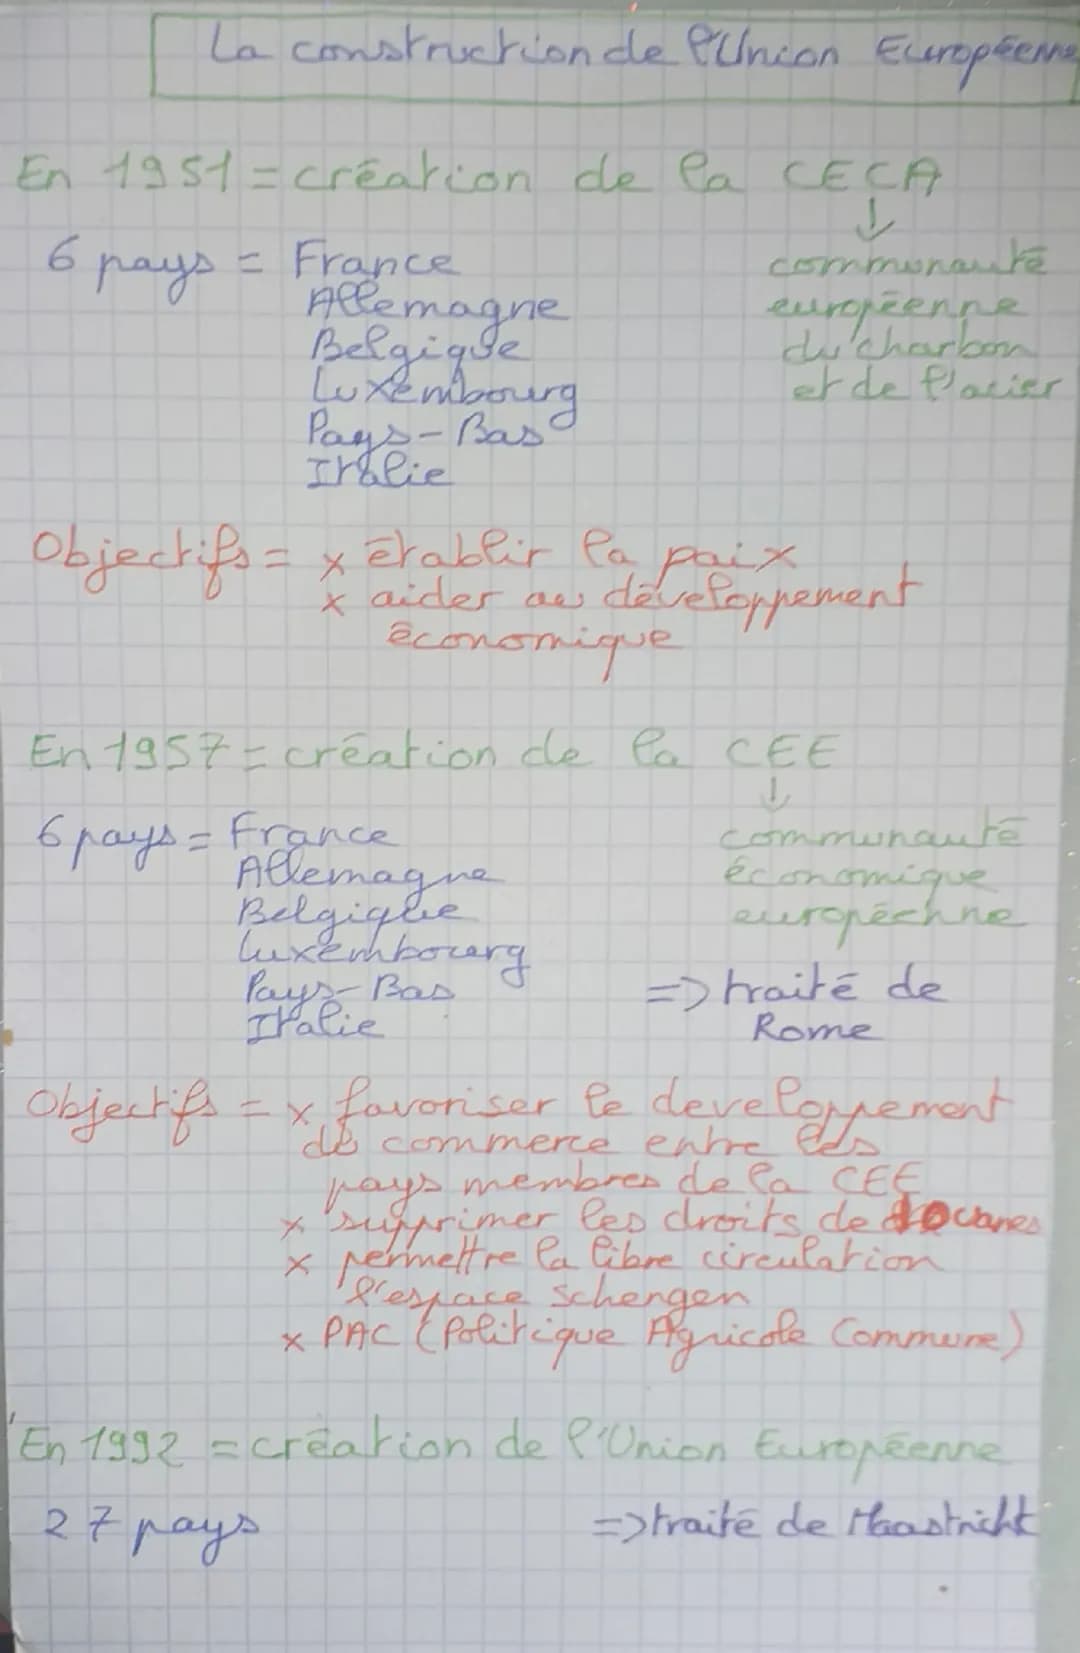 La construction de l'Union Européenne
En 1951 = création de la CECA
↓
communauté
européenne
du charbon
et de l'acier
6 pays = France
Allemagne
Belgique
Luxembourg
Pays-Bas
Italie
Objectifs = x établir la paix
x aider au développement
économique
En 1957 = création de la CEE
↓
communauté
économique
européenne
=> traité de
Rome
6 pays = France
Allemagne
Belgique
Luxembourg
Pays-Bas
Italie
Objectifs = x favoriser le developpement
de commerce entre les
pays membres de la CEE
x supprimer les droits de douanes
x permettre la libre circulation
l'espace Schengen
x PAC (Politique Agricole Commune)
En 1992 = création de l'Union Européenne
27 pays => traité de Maastricht